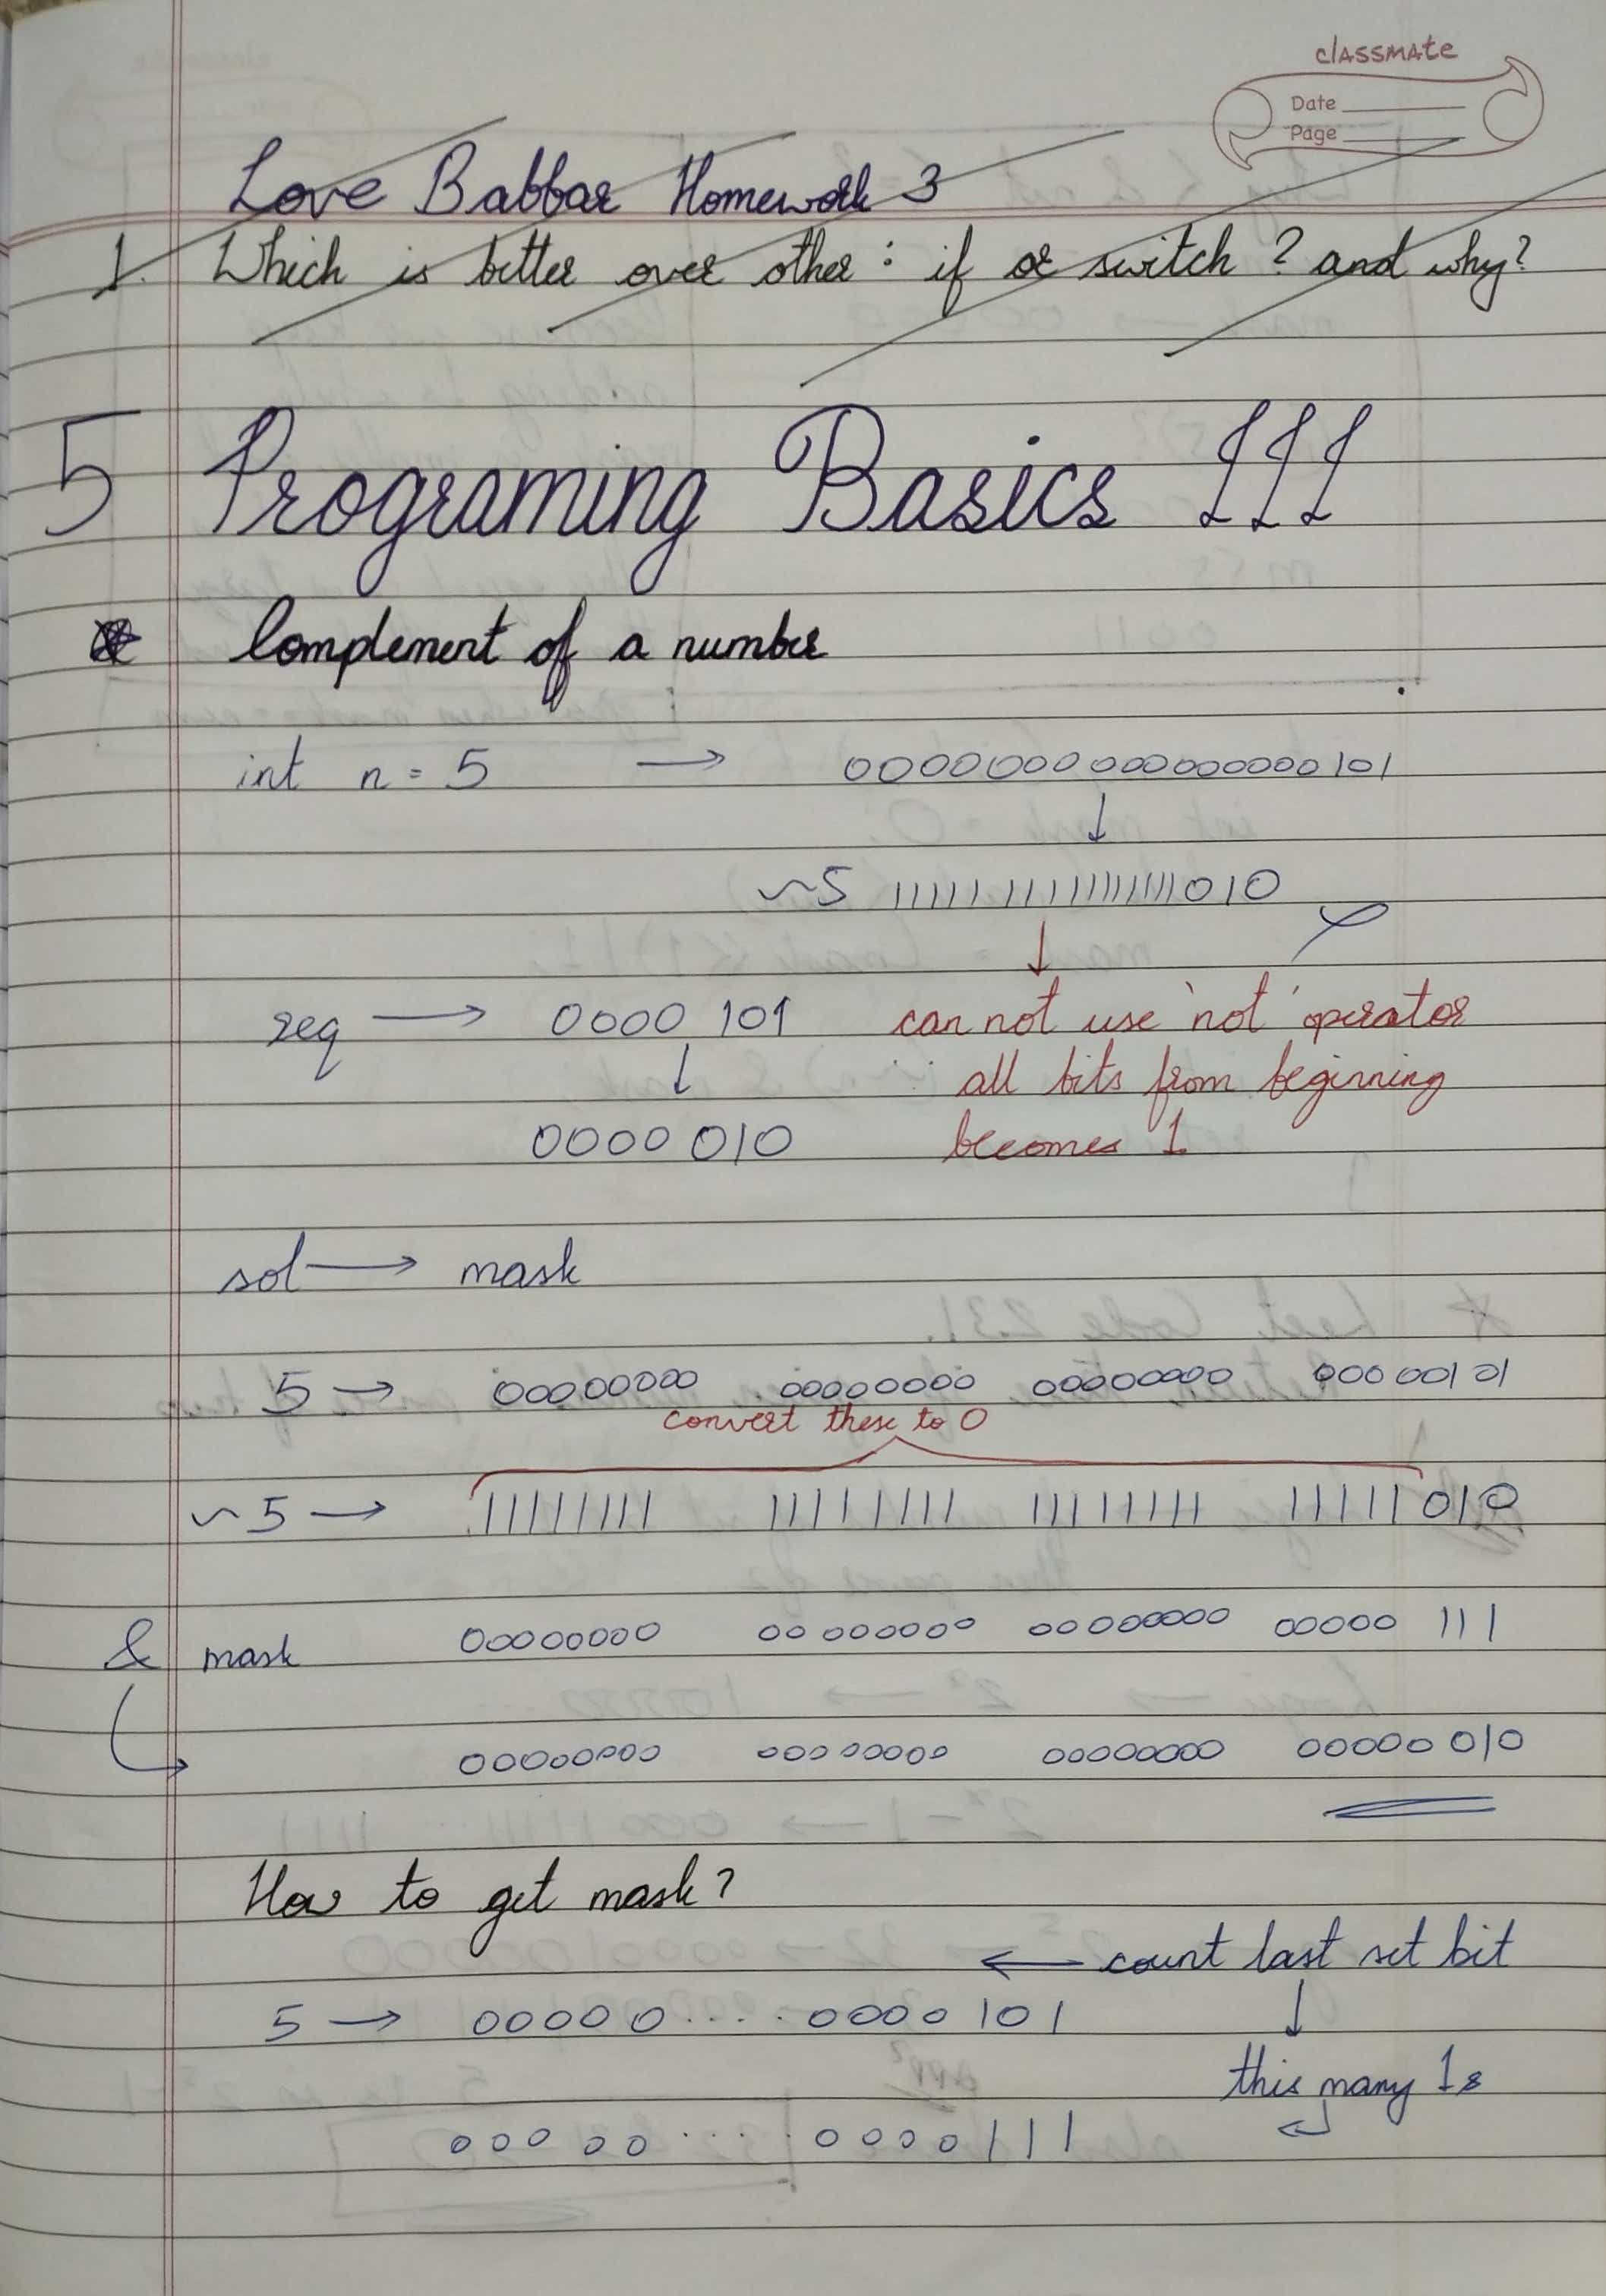 classmate
Date
Page
Love Babbar Homework 3
1. Which is better over other : if or switch ? and why?
5 Programing Basics III
Complement of a number
int n = 5 → 0000000000000000101
↓
~5 11111111111111111010
↓
req → 0000 101 can not use 'not' operator
↓ ∵ all bits from beginning
0000 010 becomes 1
sol → mask
5 → 00000000 00000000 00000000 00000101
convert these to 0
~5 → 11111111 11111111 11111111 11111010
& mask 00000000 00000000 00000000 00000 111
00000000 00000000 00000000 00000 010
How to get mask?
← count last set bit
5 → 00000 .... 0000101
↓
this many 1s
00000 .... 0000111